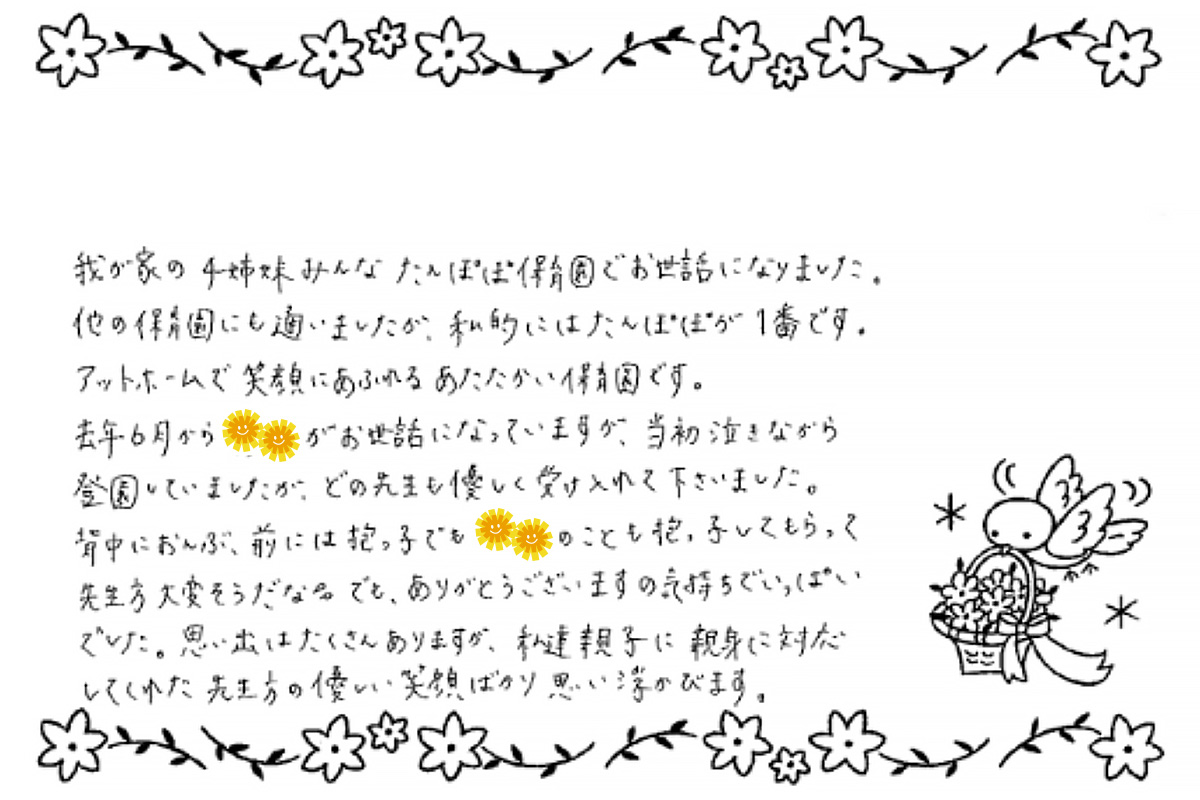 我が家の4姉妹みんなたんぽぽ保育園でお世話になりました。
他の保育園にも通いましたが、私的にはたんぽぽが1番です。
アットホームで笑顔にあふれるあたたかい保育園です。
去年6月から がお世話になっていますが、当初泣きながら
登園していましたが、どの先生も優しく受け入れて下さいました。
背中におんぶ、前には抱っ子でも のことも抱っ子してもらって
先生方大変そうだな〜でも、ありがとうございますの気持ちでいっぱい
でした。思い出はたくさんありますが、私達親子に親身に対応
してくれた先生方の優しい笑顔ばかり思い浮かびます。